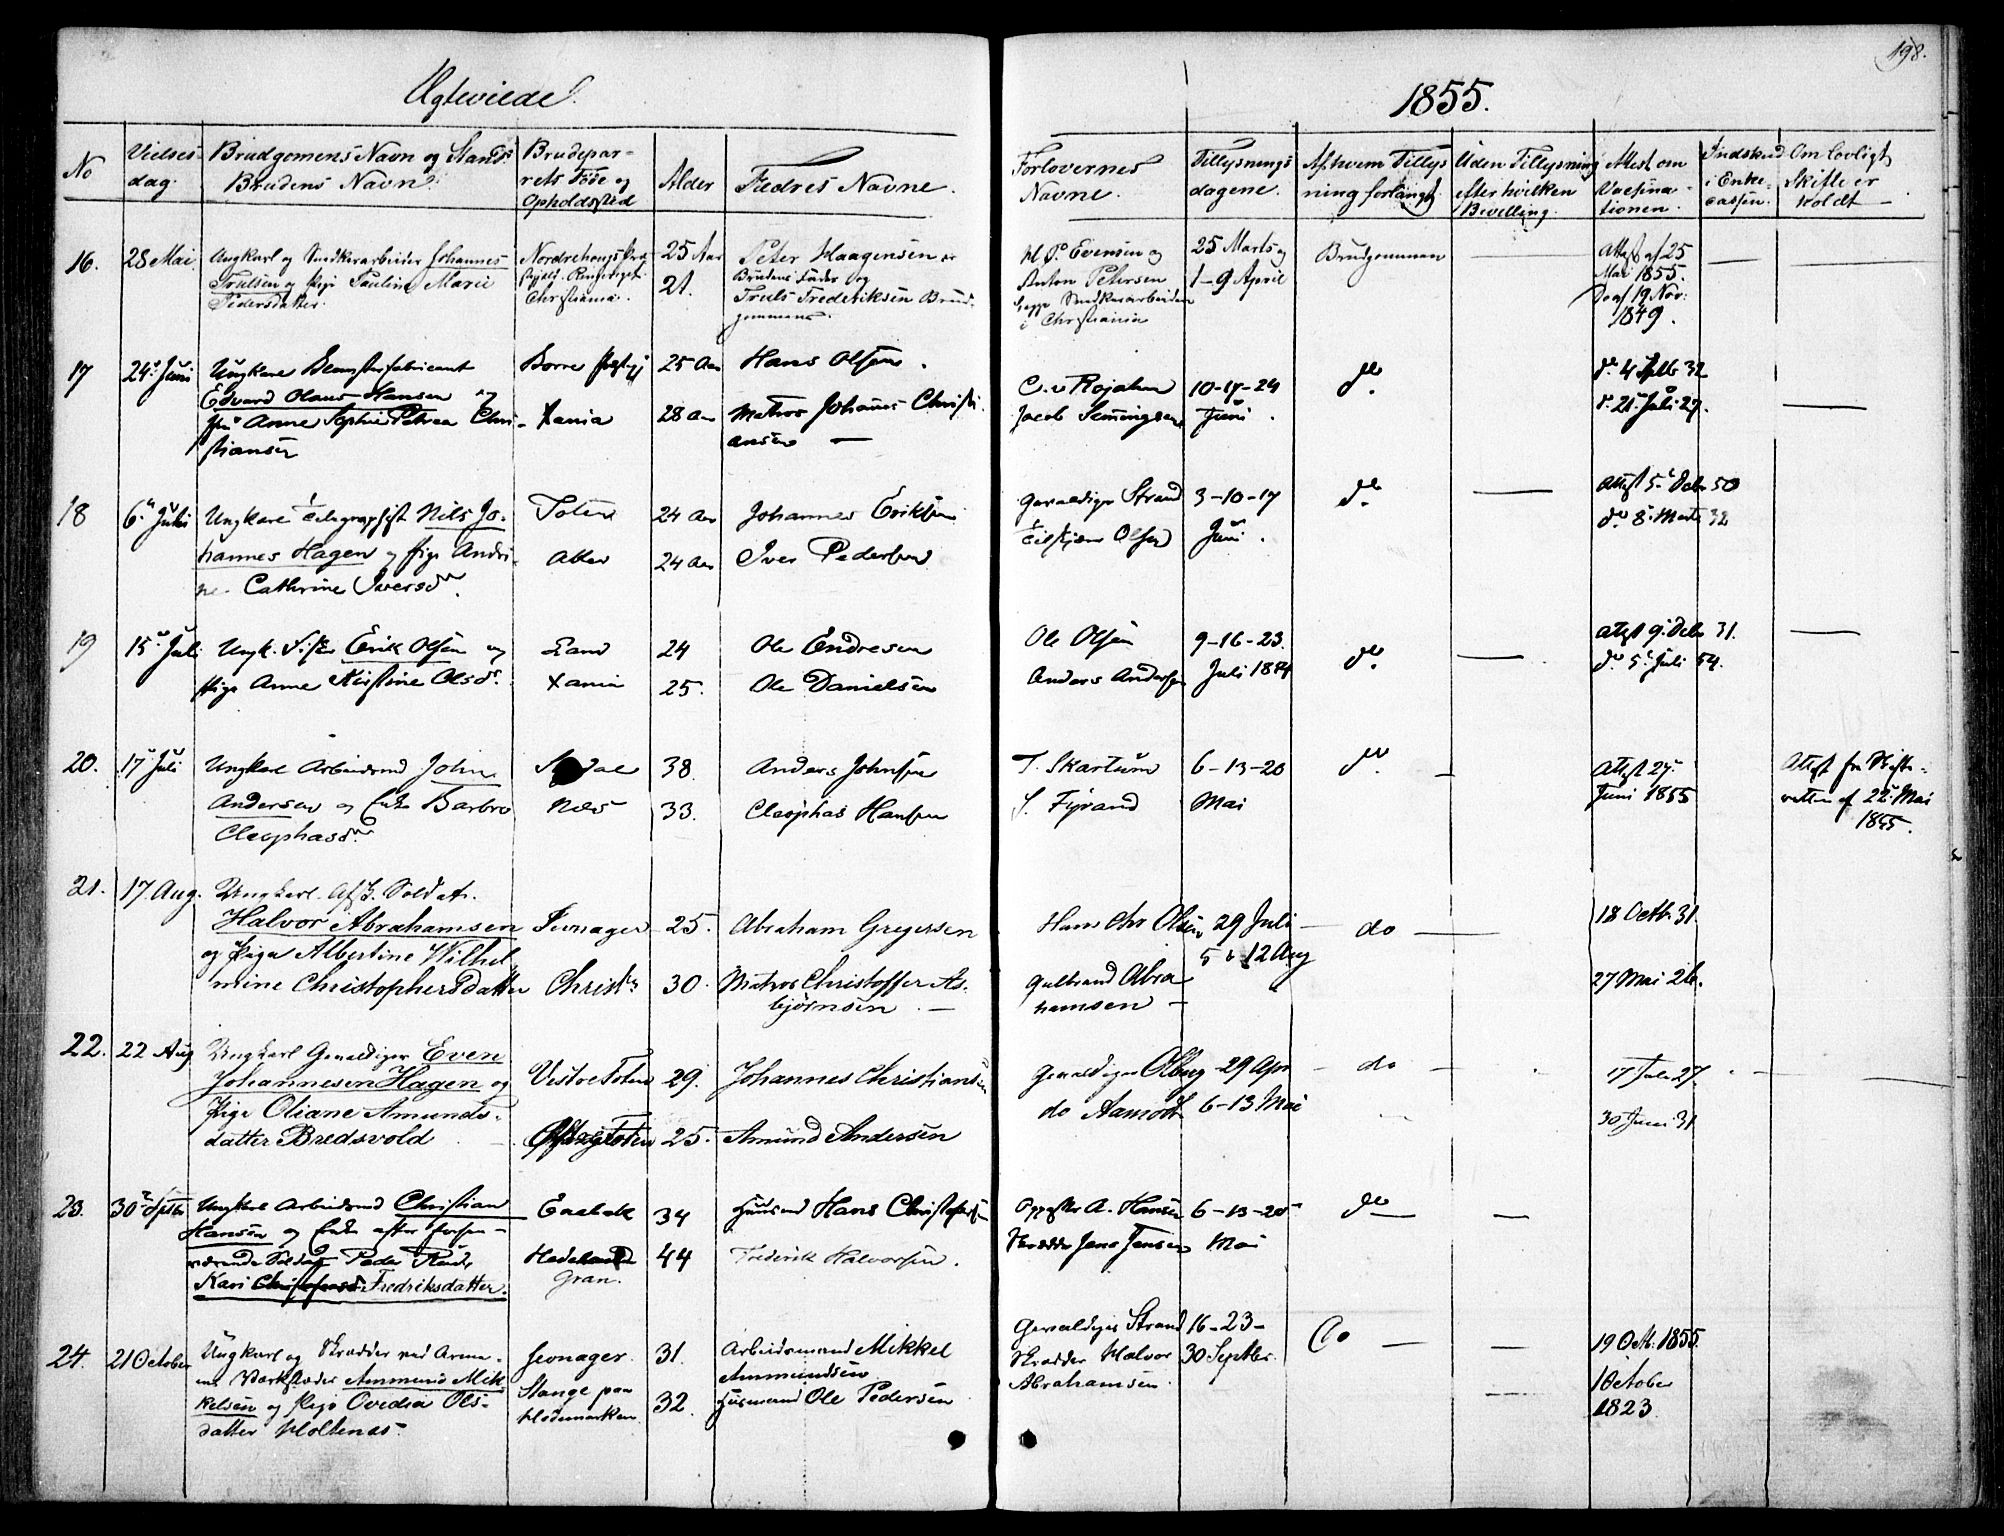 Ægteviede.
No
Vielses-
dag.
Brudgomens Navn og Stand.
Brudens Navn.
Brudepar-
rets Føde og
Opholdssted
Alder
Fædres Navne.
16.
28 Mai
Ungkarl og Snedkerarbeider Johannes
Trulsen og Pige Pauline Marie
Pedersdatter.
Nordrehougs
Ringeriget.
Christiania.
25 Aar
21.
Peter Haagensen er
Brudens Fader og
Truls Frederiksen Brud-
gommens.
17
24 Juni
Ungkarl
Edvard Olaus Hansen og
Anne Sophie Petrea Chri-
stiansen
Borre
Xania
25 Aar
28 Aar
Hans Olsen.
Matros Johannes Christi-
ansen —
18
6 Juli
Ungkarl Telegraphist Nils Jo-
hannes Hagen og Pige Andri-
ne Cathrine Iversdr.
Toten
Aker
24 Aar
24 Aar
Johannes Eriksen
Iver Pedersen
19
15 Juli
Ungk. Erik Olsen og
Pige Anne Kirstine Olsdr.
Land
Xania
24
25.
Ole Endresen
Ole Danielsen
20.
17 Juli
Ungkarl Arbeidsmd John
Andersen og Enke Barbro
Cleophasdr.
Næs
38.
33.
Anders Johnsen
Cleophas Hansen
21.
17 Aug.
Ungkarl. Afsk. Soldat.
Halvor Abrahamsen
og Pige Albertine Wilhel-
mine Christophersdatter
Jevnager
Christa
25.
30.
Abraham Gregersen
Matros Christoffer As-
bjørnsen. —
22.
22 Aug
Ungkarl Gevaldiger Even
Johannesen Hagen og
Pige Oliane Amunds-
datter Bredsvold
Vestre Toten
29.
25.
Johannes Christiansen
Amund Andersen
23.
30 Septbr
Ungkarl Arbeidsmd Christian
Hansen og Enke efter forhen-
værende Soldat Peder
Kari Fredriksdatter.
Gran.
34
44
Huusmd Hans Christophersen
Frederik Halvorsen.
24.
21 October
Ungkarl og Skrædder ved Arme-
ens Værksteder Ammund Mik-
kelsen og Pige Ovedia Ols-
datter Holtenæs.
Jevnager.
Stange paa
Hedemarken.
31.
32.
Arbeidsmand Mikkel
Ammundsen
Huusmand Ole Pedersen
198.
1855.
Forlovernes
Navne.
Tillysnings
dagene.
Af hvem Tillys-
ning forlangt
Uden Tillysning
efter hvilken
Bevilling.
Attest om
Vaccina-
tionen.
Indskud
i Enke-
cassen.
Om lovligt
Skifte er
holdt —
Evensen og
Anton Petersen
begge Snedkerarbeidere
i Christiania
25 Marts og
1-9 April
Brudgommen
Attest af 25
Mai 1855.
Do af 19 Nov:
1849.
C. v Rojahn
Jacob Semmingsen
10-17-24
Juni.
do.
do 4 Septbr 32
do 21 Juli 27.
Gevaldiger Strand
Olsen
3-10-17
Juni.
do.
Attest 5 Decbr 50
do 8 Marts 32
Ole Olsen
Anders Andersen
9-16-23.
Juli 1854
do.
Attest 9 Decbr 31.
do 5 Juli 54.
T. Skartum
S. Fyrand
6-13-20
Mai
do.
Attest 27
Juni 1855
Attest fra Skifte-
retten af 22 Mai
1855.
Hans Chr Olsen
Gulbrand Abra
hamsen —
29 Juli
5 & 12 Aug
do
18 Octb. 31.
27 Mai 26.
Gevaldiger Olberg
do Aamodt
29 Apr
6-13 Mai
do
17 Juli 27.
30 Juni 31
A. Hansen
Skrædder Jens Jensen
6-13-20
Mai
do
Gevaldiger Strand
Skrædder Halvor
Abrahamsen.
16-23-
30 Septbr.
Do
19 Oct. 1855.
1 October
1823.